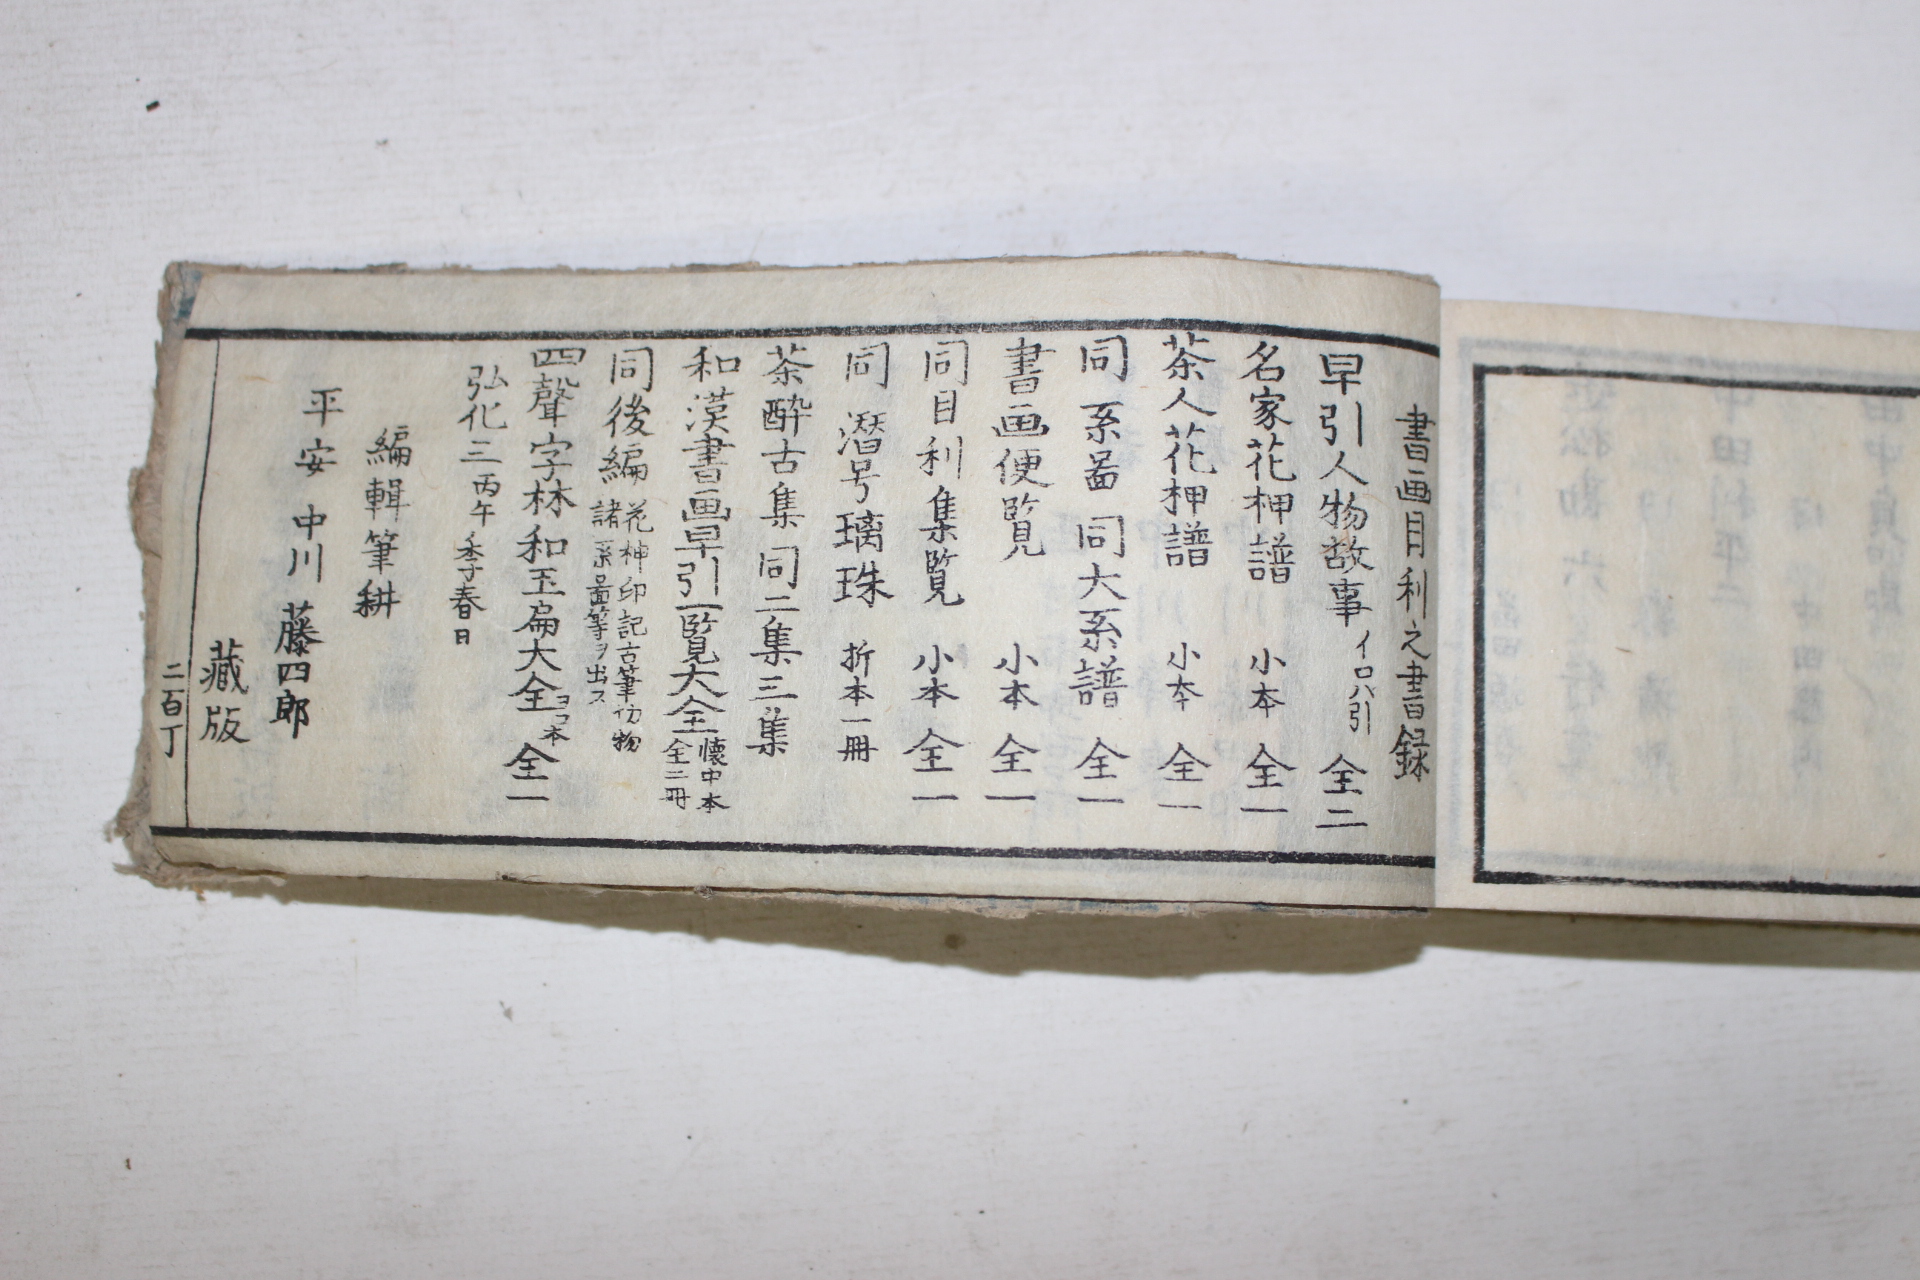 書画目利之書録
早引人物故事 イロハ引 全二
名家花押譜 小本 全一
茶人花押譜 小本 全一
同系啚 同大系譜 全一
書画便覧 小本 全一
同目利集覧 小本 全一
同 潜号璃珠 折本一冊
茶酔古集 同二集 三集
和漢書画早引一覧大全 懐中本 全二冊
同後編 花押印記古筆仂物 諸系啚等ヲ出ス
四聲字林和玉扁大全 ヨコ本 全一
弘化三丙午季春日
編輯筆耕
平安 中川藤四郎
蔵版
二百丁